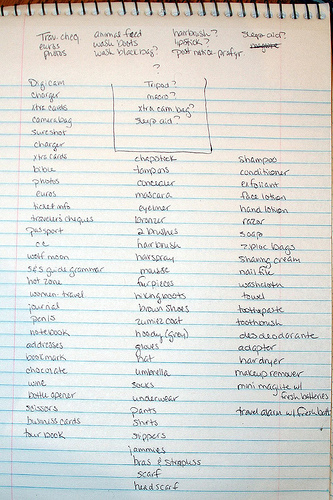 Trav. cheq.
euros
photos
animal feed
wash boots
wash black bag?
hairbrush?
lipstick?
post notice-prafyr
sleep aid?
?
Tripod?
macro?
xtra cam bag?
sleep aid?
Digicam
charger
xtra cards
camera bag
sureshot
charger
xtra cards
bible
photos
euros
ticket info
traveler's cheques
passport
cc
wolf moon
s&s guide grammar
hot zone
women: travel
journal
pens
notebook
addresses
bookmark
chocolate
wine
bottle opener
scissors
business cards
tour book
chapstick
tampons
concealer
mascara
eyeliner
bronzer
2 brushes
hairbrush
hairspray
mousse
fur pieces
hiking boots
brown shoes
zumiez coat
hoody (gray)
gloves
hat
umbrella
socks
underwear
pants
shirts
slippers
jammies
bras & strapless
scarf
headscarf
shampoo
conditioner
exfoliant
face lotion
hand lotion
razor
soap
ziploc bags
shaving cream
nail file
washcloth
towel
toothpaste
toothbrush
desodeodorante
adapter
hairdryer
makeup remover
mini maglite w/
fresh batteries
travel alarm w/ fresh batts